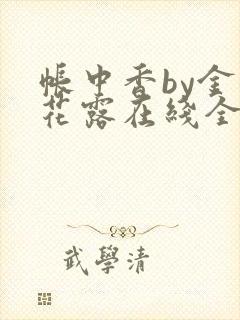 帐中香by金
花露在线全
武學清